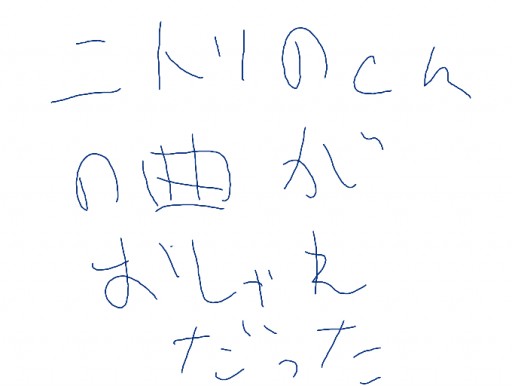 ニトリのCM
の曲が
おしゃれ
だった